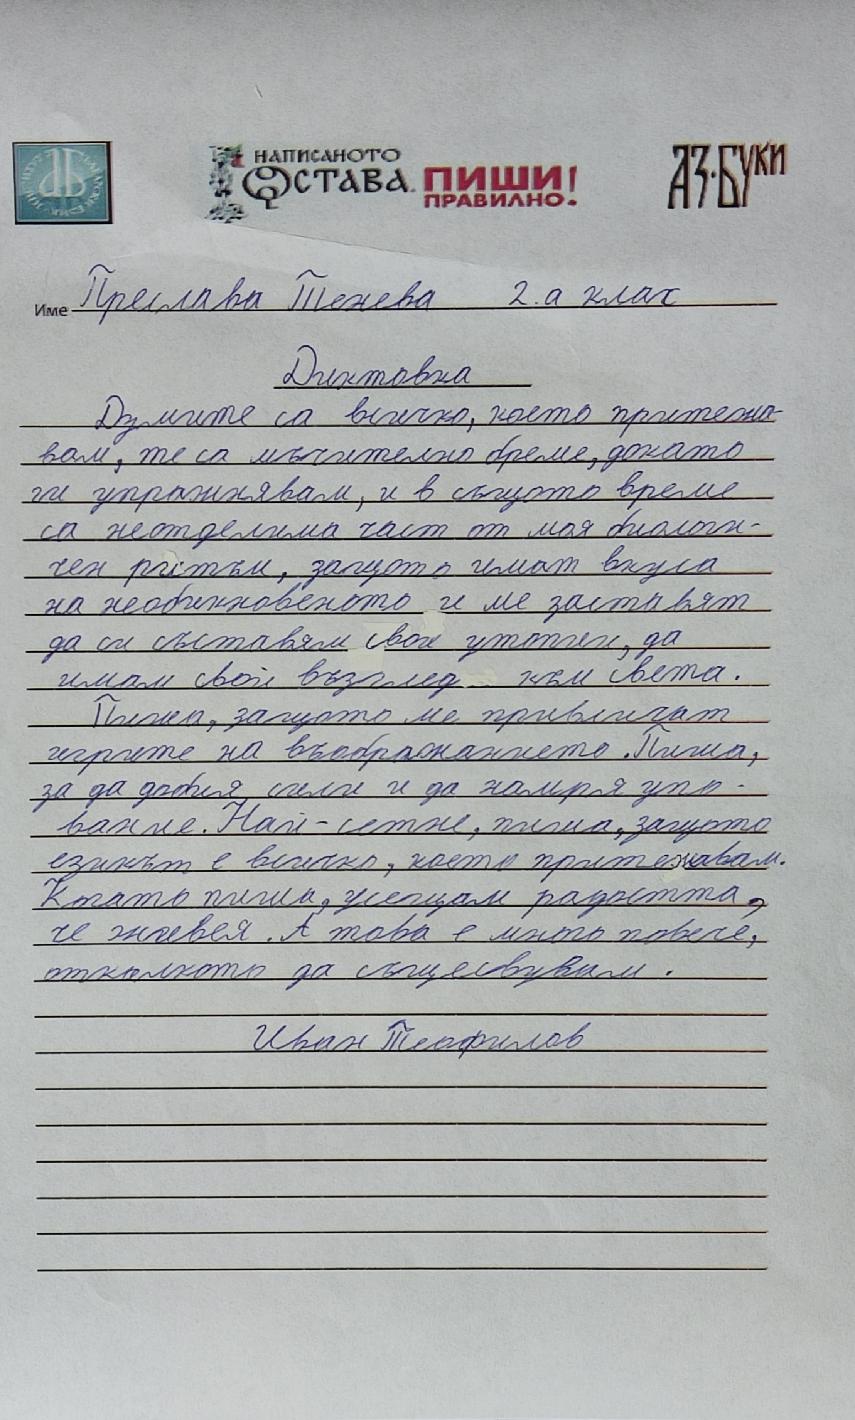 НАПИСАНОТО
ОСТАВА. ПИШИ
ПРАВИЛНО!
АЗ·БУКИ
Име Преслава Тенева 2.а клас
Диктовка
Думите са всичко, което притежа-
вам, те са мъчително бреме, докато
ги упражнявам, и в същото време
са неотделима част от моя биологи-
чен ритъм, защото имат вкуса
на необикновеното и ме заставят
да си съставям свои утопии, да
имам свой възглед към света.
Пиша, защото ме привличат
игрите на въображанието. Пиша,
за да добия сили и да намря упо-
вание. Най-сетне, пиша, защото
езикът е всичко, което притежавам.
Когато пиша, усещам радостта,
че живея. А това е много повече,
отколкото да съществувам.
Иван Теофилов